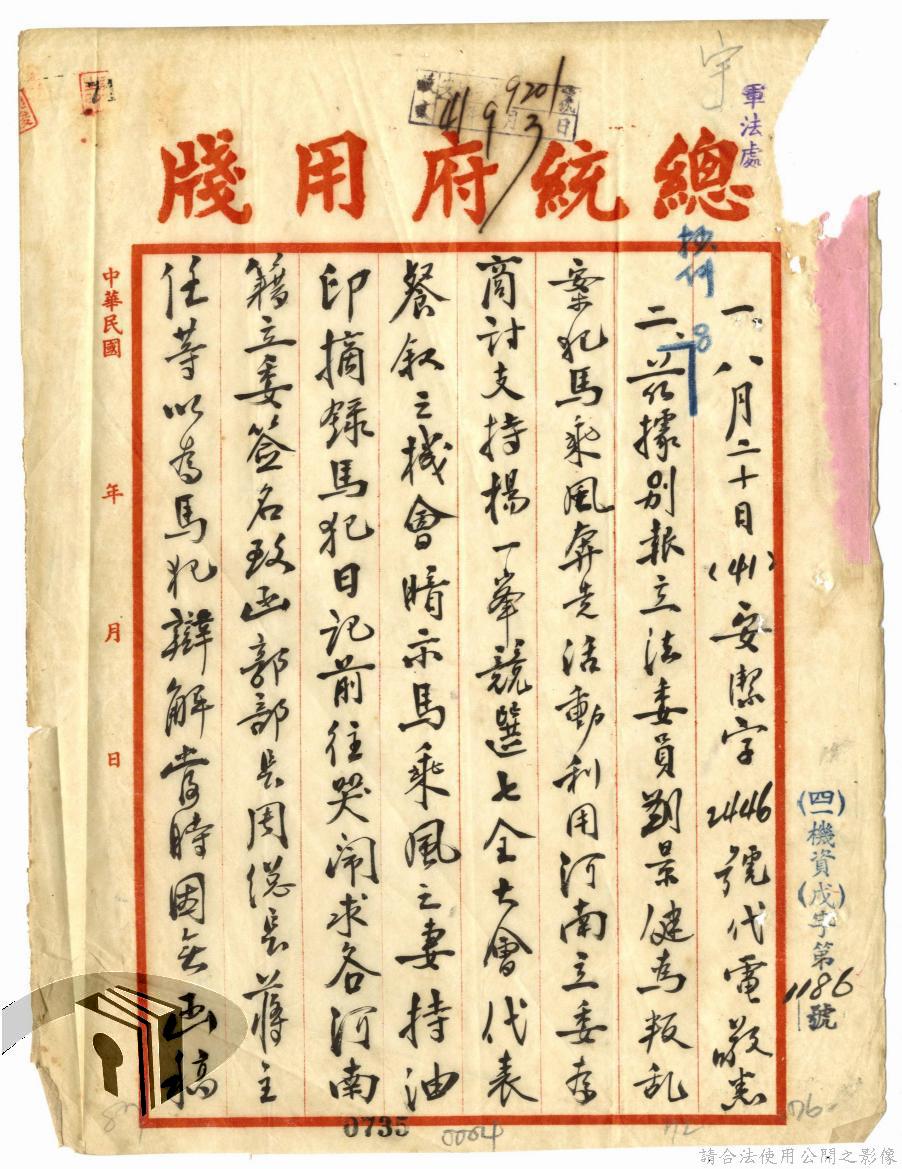 宇
軍法處
9201號
41 9月3日
總統府用牋
抄件
8
一、八月二十日(41)安潔字2446號代電敬悉
二、茲據別報立法委員劉景健為叛亂
案犯馬乘風奔走活動利用河南立委在
商討支持楊一峯競選七全大會代表
餐敘之機會暗示馬乘風之妻持油
印摘錄馬犯日記前往哭鬧求各河南
籍立委簽名致函郭部長周總長蔣主
任等以為馬犯辯解當時因無函稿
中華民國 年 月 日
(四一)機資(戌)字第1186號
0735
0004
76-
請合法使用公開之影像